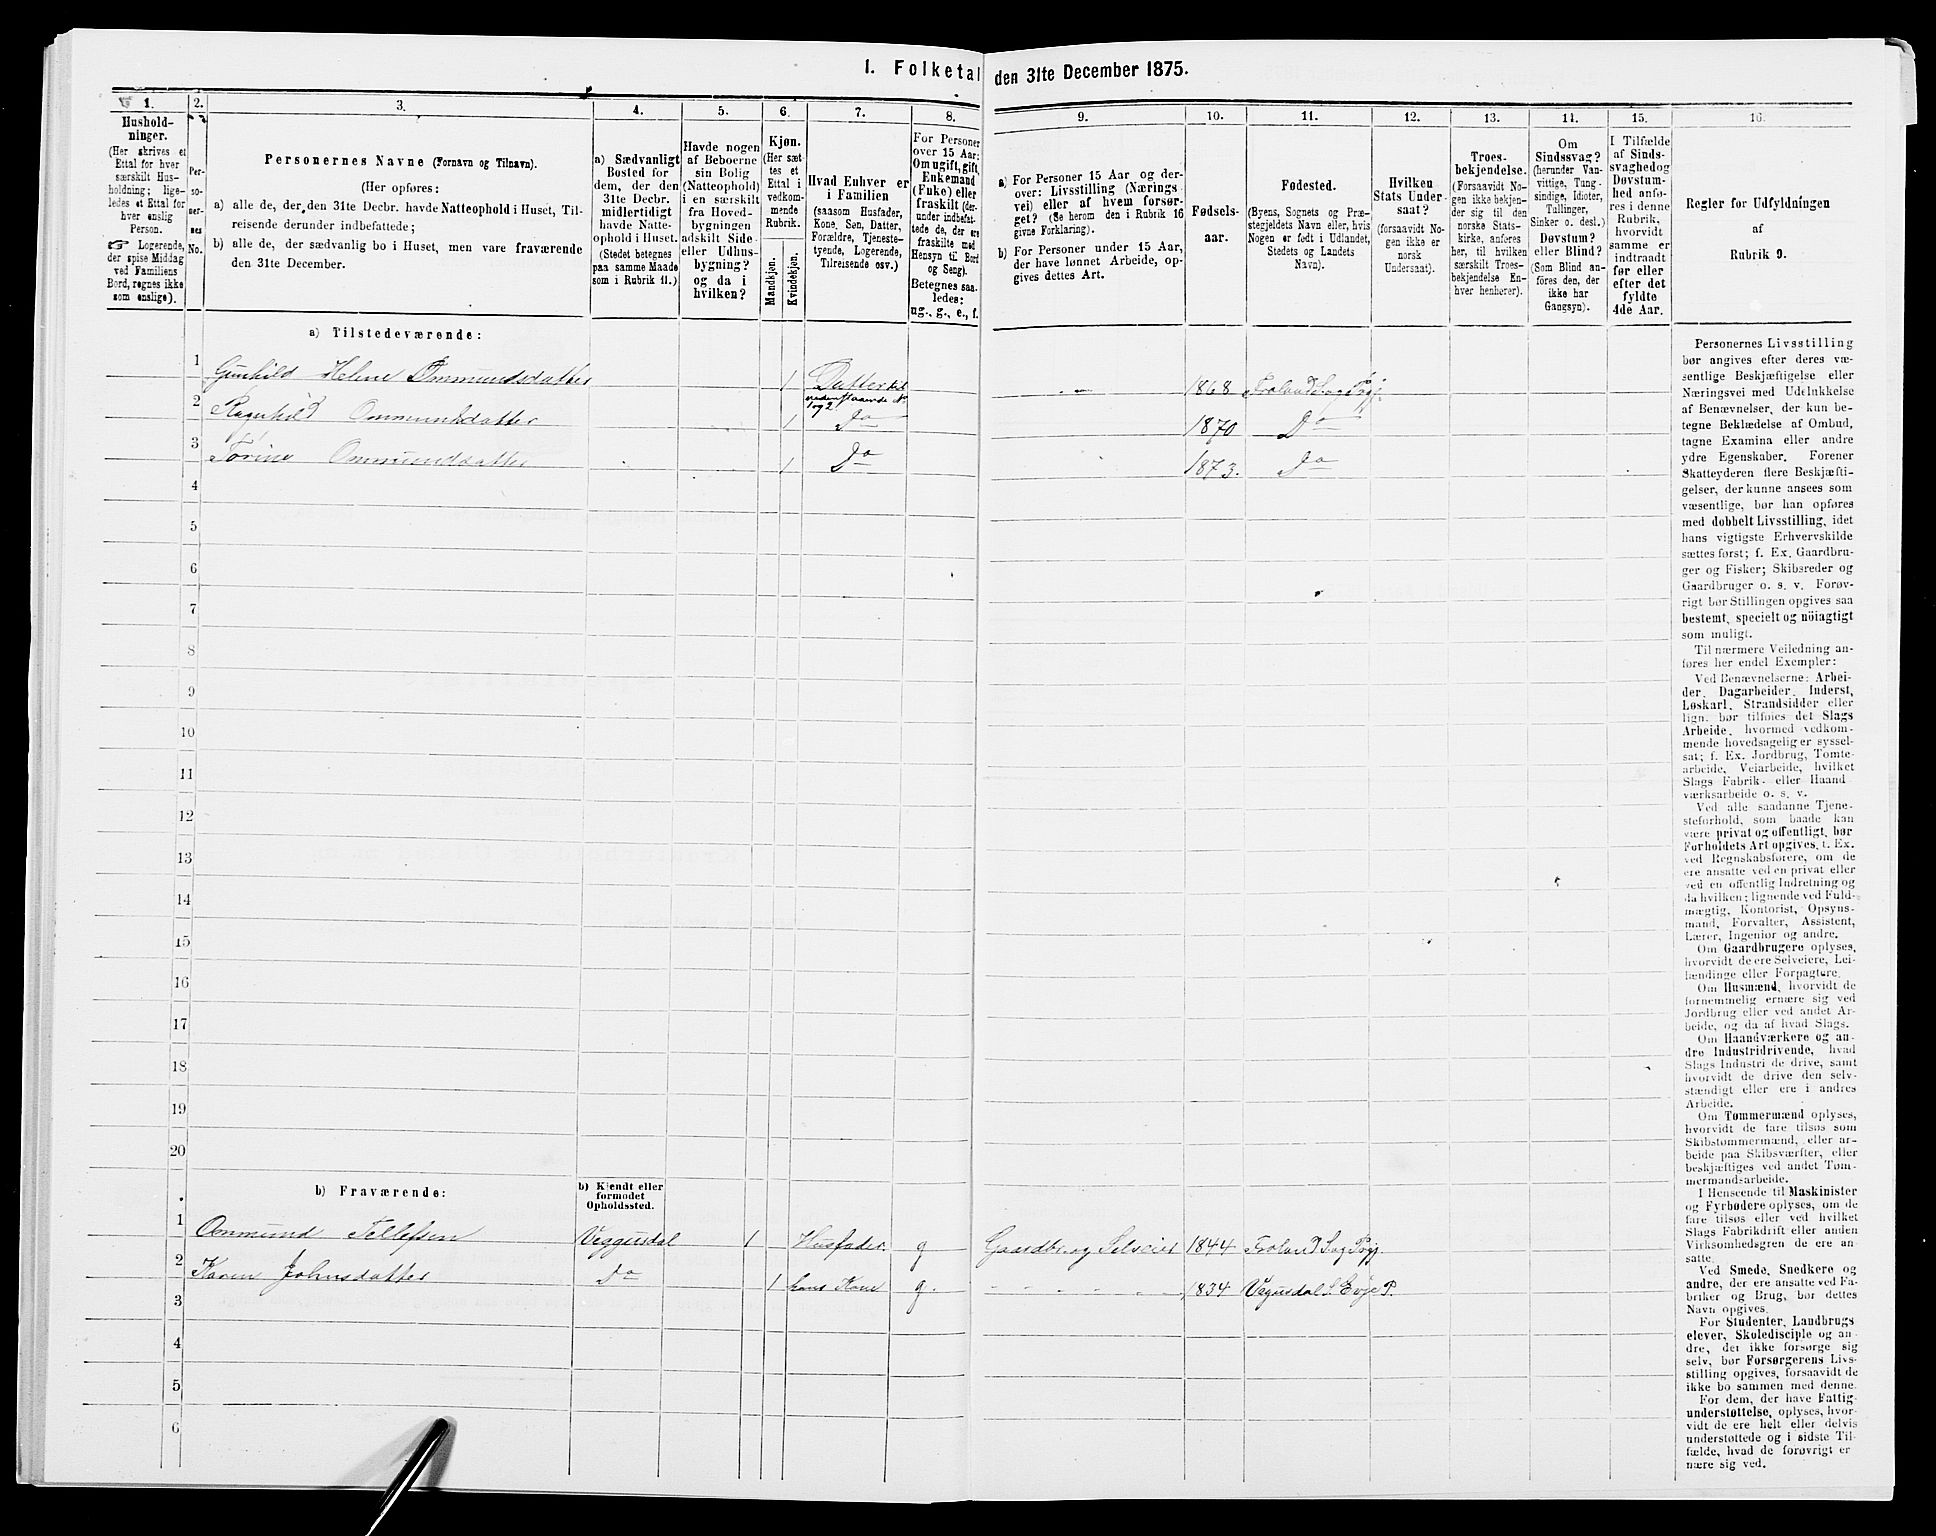 1. Folketal den 31te December 1875.
1.
Hushold-
ninger.
(Her skrives et
Ettal for hver
særskilt Hus-
holdning; lige-
ledes et Ettal for
hver enslig
Person.
☞ Logerende,
der spise Middag
ved Familiens
Bord, regnes ikke
som enslige).
2.
Per-
so-
ner-
nes
No.
3.
Personernes Navne (Fornavn og Tilnavn).
(Her opføres:
a) alle de, der den 31te Decbr. havde Natteophold i Huset, Til-
reisende derunder indbefattede;
b) alle de, der sædvanlig bo i Huset, men vare fraværende
den 31te December.
4.
a) Sædvanligt
Bosted for
dem, der den
31te Decbr.
midlertidigt
havde Natte-
ophold i Huset.
(Stedet betegnes
paa samme Maade
som i Rubrik 11.)
5.
Havde nogen
af Beboerne
sin Bolig
(Natteophold)
i en særskilt
fra Hoved-
bygningen
adskilt Side-
eller Udhus-
bygning?
og da i
hvilken?
6.
Kjøn.
(Her sæt-
tes et
Ettal i
vedkom-
mende
Rubrik.
Mandkjøn.
Kvindekjøn.
7.
Hvad Enhver er
i Familien
(saasom Husfader,
Kone, Søn, Datter,
Forældre, Tjeneste-
tyende, Logerende,
Tilreisende osv.)
8.
For Personer
over 15 Aar:
Om ugift, gift,
Enkemand
(Enke) eller
fraskilt (der-
under indbefat-
tede de, der ere
fraskilte med
Hensyn til Bord
og Seng).
Betegnes saa-
ledes:
ug., g., e., f.
9.
a) For Personer 15 Aar og der-
over: Livsstilling (Nærings
vei) eller af hvem forsør-
get? (Se herom den i Rubrik 16
givne Forklaring).
b) For Personer under 15 Aar,
der have lønnet Arbeide, op-
gives dettes Art.
10.
Fødsels-
aar.
11.
Fødested.
(Byens, Sognets og Præ-
stegjeldets Navn eller, hvis
Nogen er født i Udlandet,
Stedets og Landets
Navn).
12.
Hvilken
Stats Under-
saat?
(forsaavidt No-
gen ikke er
norsk
Undersaat).
13.
Troes-
bekjendelse.
(Forsaavidt No-
gen ikke bekjen-
der sig til den
norske Stats-
kirke, anføres
her, til hvilken
særskilt Troes-
bekjendelse En-
hver henhører).
14.
Om
Sindssvag?
(herunder Van-
vittige, Tung-
sindige, Idioter,
Tullinger,
Sinker o. desl.)
Døvstum?
eller Blind?
(Som Blind an-
føres den, der
ikke har
Gangsyn).
15.
I Tilfælde
af Sinds-
svaghed og
Døvstum-
hed anfø-
res i denne
Rubrik,
hvorvidt
samme er
indtraadt
før eller
efter det
fyldte
4de Aar.
16.
Regler for Udfyldningen
af
Rubrik 9.
a) Tilstedeværende:
1 Gunhild Helene Ommundsdatter 1 Datter til nedenstaaende No 1 og 2 1868 Froland Sog Pgj.
2 Ragnhild Ommundsdatter 1 Do 1870 Do
3 Torine Ommundsdatter 1 Do 1873. Do
4
5
6
7
8
9
10
11
12
13
14
15
16
17
18
19
20
b) Fraværende:
b) Kjendt eller
formodet
Opholdssted.
1 Ommund Tellefsen Veggusdal 1 Husfader g Gaardbr. og Selveier 1844 Froland Sog Pgj.
2 Karen Johnsdatter Do 1 hans Kone g. 1834 Vegusdal S. Evje P.
3
4
5
6
Personernes Livsstilling
bør angives efter deres væ-
sentlige Beskjæftigelse eller
Næringsvei med Udelukkelse
af Benævnelser, der kun be-
tegne Beklædelse af Ombud,
tagne Examina eller andre
ydre Egenskaber. Forener
Skatteyderen flere Beskjæfti-
gelser, der kunne ansees som
væsentlige, bør han opføres
med dobbelt Livsstilling, idet
hans vigtigste Erhvervskilde
sættes først; f. Ex. Gaardbru-
ger og Fisker; Skibsreder og
Gaardbruger o. s. v. Forøv-
rigt bør Stillingen opgives saa
bestemt, specielt og nöiagtigt
som muligt.
Til nærmere Veiledning an-
føres her endel Exempler:
Ved Benævnelserne: Arbei-
der, Dagarbeider, Inderst,
Løskarl, Strandsidder eller
lign. bør tilføies det Slags
Arbeide, hvormed vedkom-
mende hovedsagelig er syssel-
sat; f. Ex. Jordbrug, Tomte-
arbeide, Veiarbeide, hvilket
Slags Fabrik- eller Haand
værksarbeide o. s. v.
Ved alle saadanne Tjene-
steforhold, som baade kan
være privat og offentligt, bør
Forholdets Art opgives, t. Ex.
ved Regnskabsførere, om de
ere ansatte ved en privat eller
ved en offentlig Indretning og
da hvilken; lignende ved Fuld-
mægtig, Kontorist, Opsyns-
mand, Forvalter, Assistent,
Lærer, Ingeniør og andre.
Om Gaardbrugere oplyses,
hvorvidt de ere Selveiere, Lei-
lændinge eller Forpagtere.
Om Husmænd, hvorvidt de
fornemmelig ernære sig ved
Jordbrug eller ved andet Ar-
beide, og da af hvad Slags.
Om Haandværkere og an-
dre Industridrivende, hvad
Slags Industri de drive, samt
hvorvidt de drive den selv-
stændigt eller ere i andres
Arbeide.
Om Tømmermænd oplyses,
hvorvidt de fare tilsøs som
Skibstømmermænd, eller ar-
beide paa Skibsværfter, eller
beskjæftiges ved andet Tøm-
mermandsarbeide.
I Henseende til Maskinister
og Fyrbødere oplyses, om de
fare tilsøs eller ved hvilket
Slags Fabrikdrift eller anden
Virksomhedsgren de ere an-
satte.
Ved Smede, Snedkere og
andre, der ere ansatte ved Fa-
briker og Brug, bør dettes
Navn opgives.
For Studenter, Landbrugs
elever, Skoledisciple og an-
dre, der ikke forsørge sig
selv, bør Forsørgerens Livs-
stilling opgives, forsaavidt de
ikke bo sammen med denne.
For dem, der have Fattig-
understøttelse, oplyses, hvor-
vidt de ere helt eller delvis
understøttede og i sidste Til-
fælde, hvad de forøvrigt er
nære sig ved.